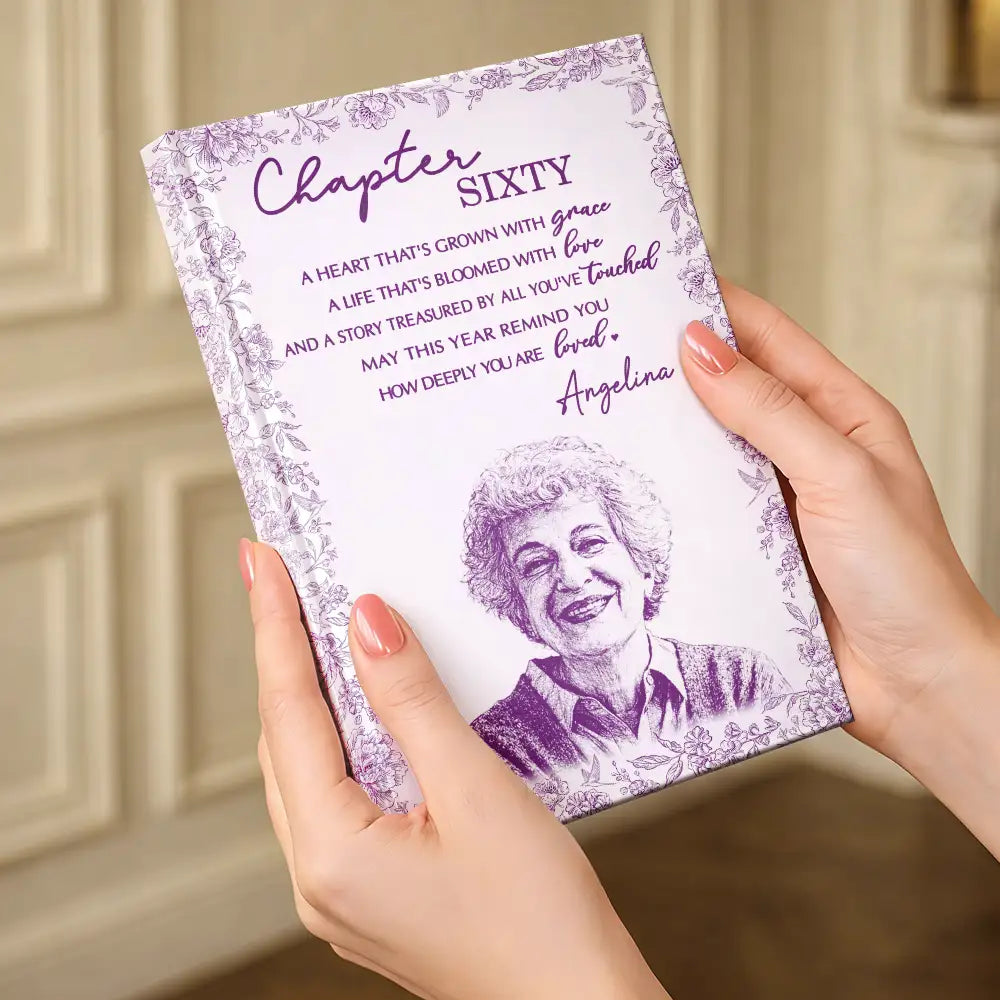 Chapter
SIXTY
A HEART THAT'S GROWN WITH grace
A LIFE THAT'S BLOOMED WITH love
AND A STORY TREASURED BY ALL YOU'VE touched
MAY THIS YEAR REMIND YOU
HOW DEEPLY YOU ARE loved ♥
Angelina